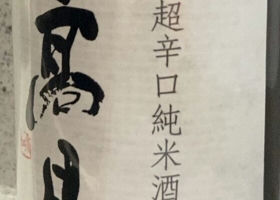 超辛口純米酒
高